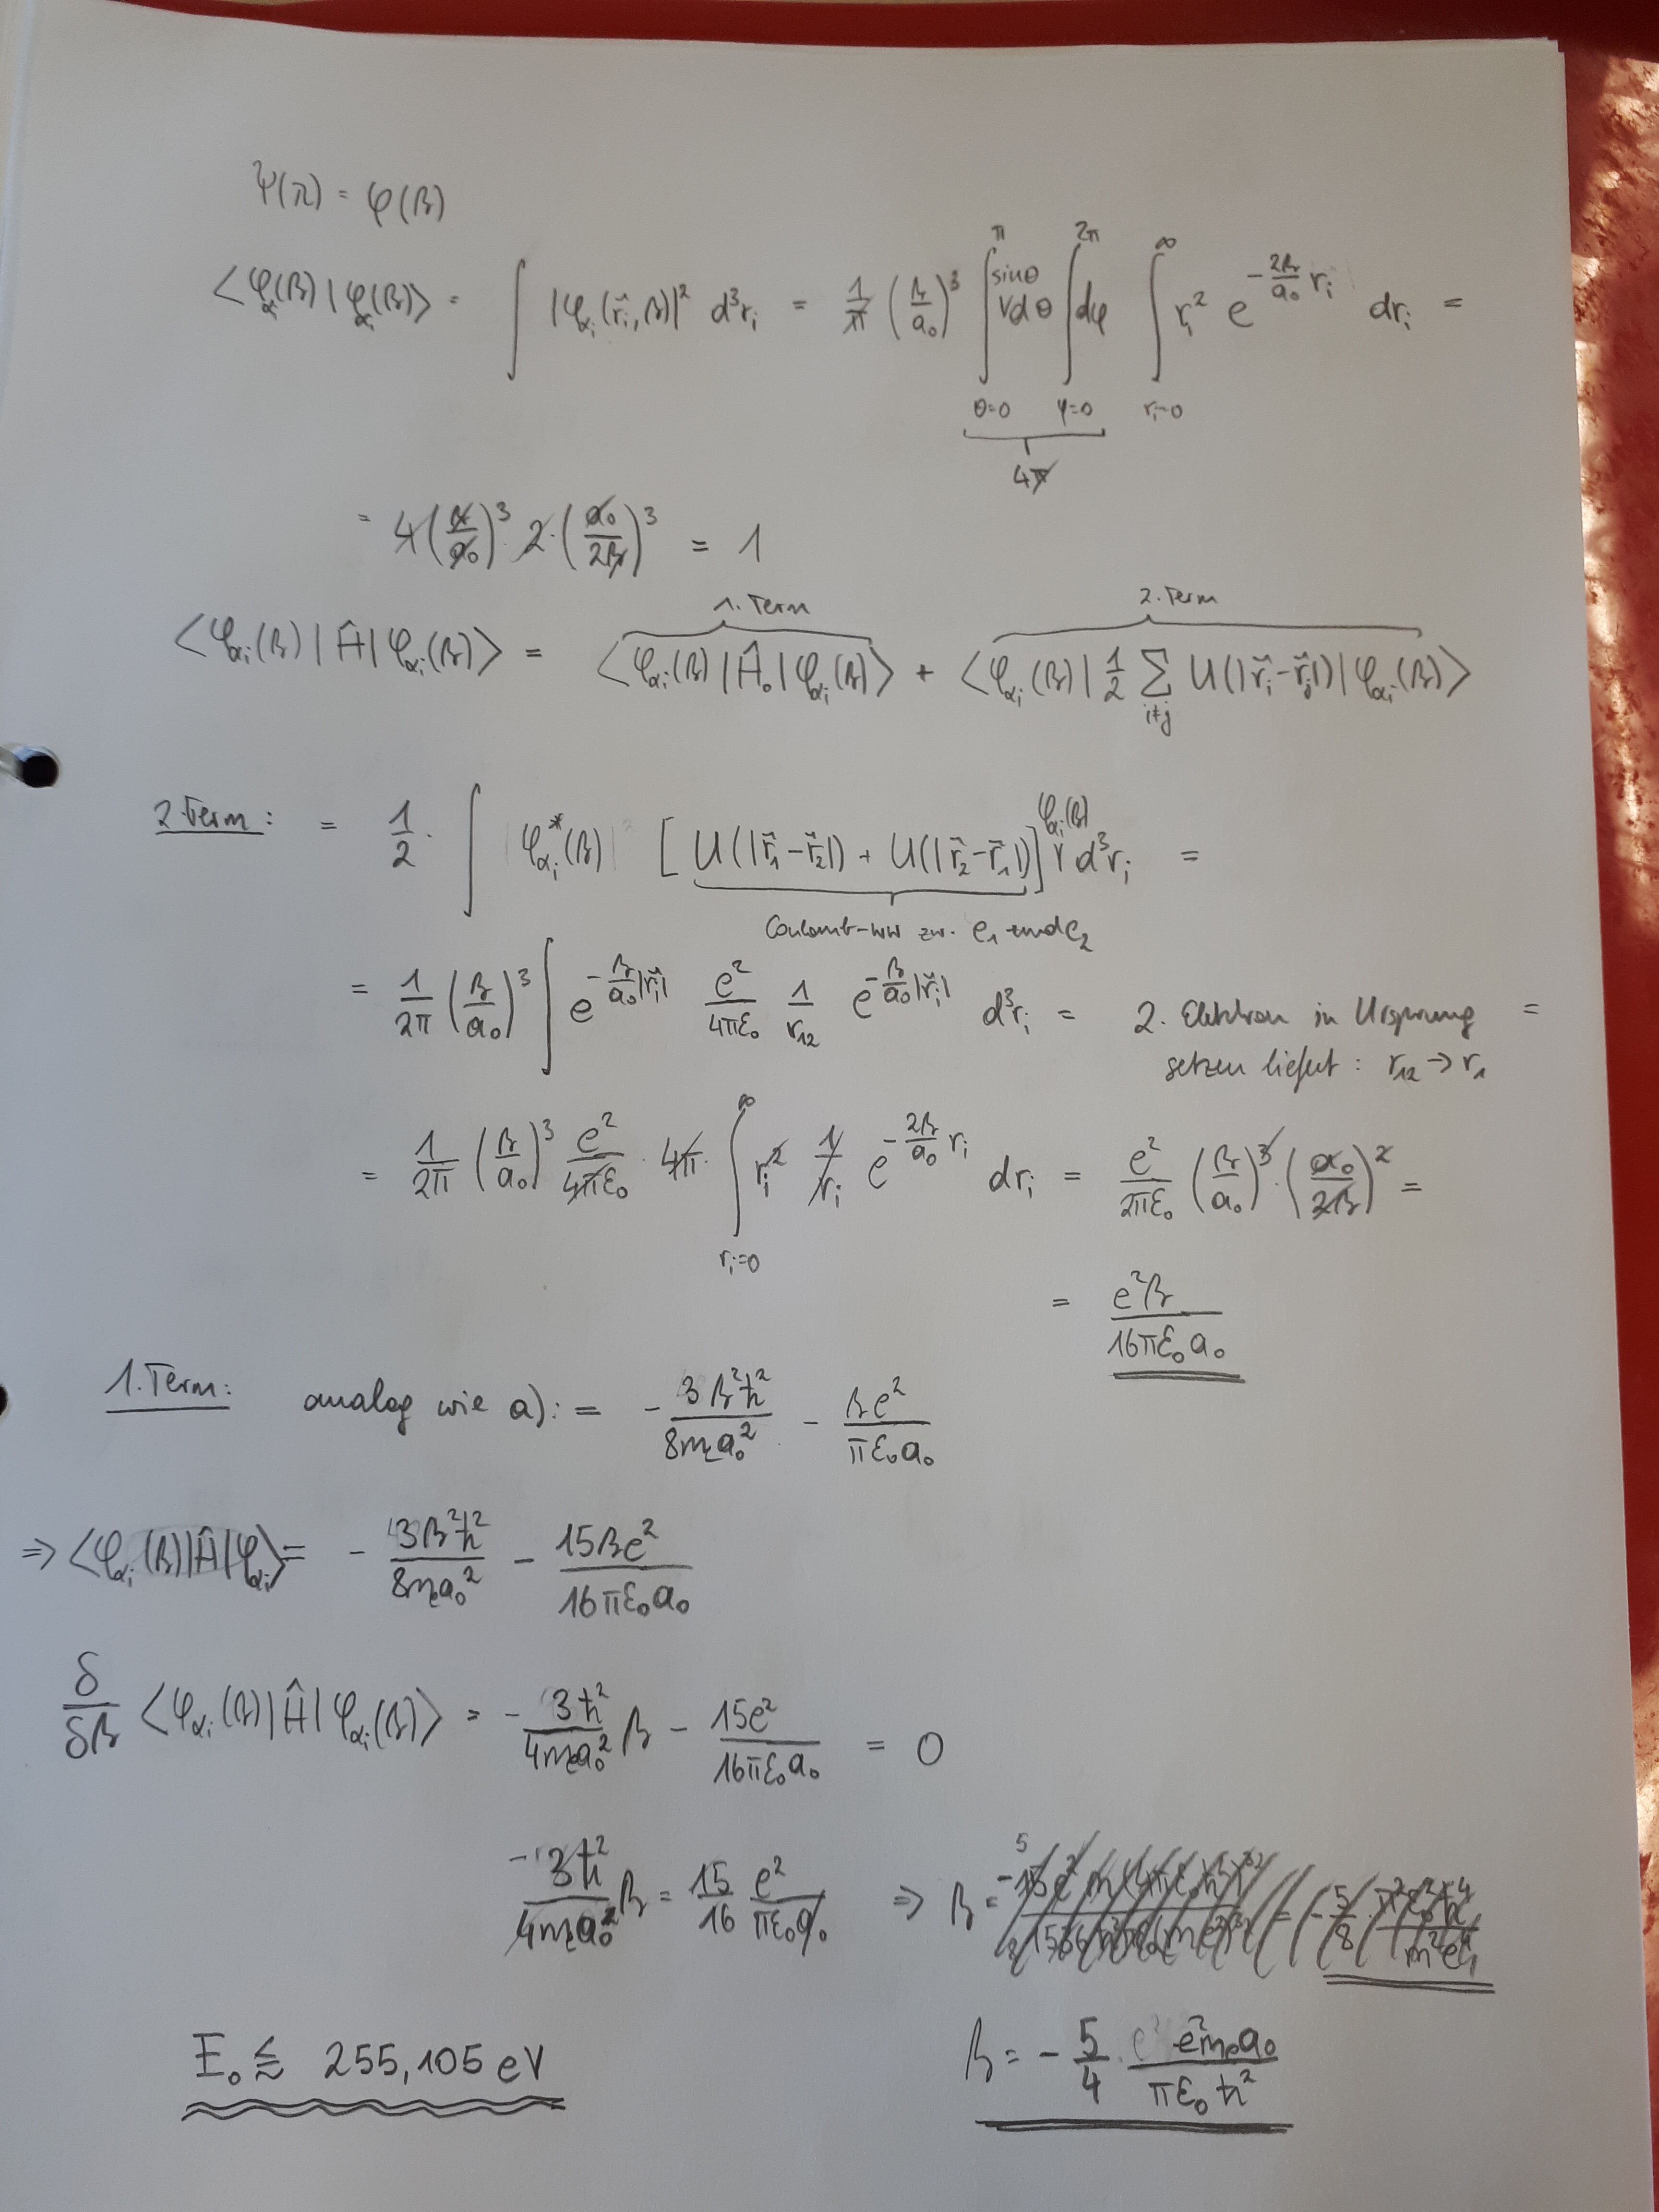 Ψ(r) = φ(β)
⟨φ_αi(β) | φ_αi(β)⟩ = ∫ |φ_αi(r⃗_i, β)|² d³r_i = 1/π (β/a₀)³ ∫_{θ=0}^{π} sinθ dθ ∫_{φ=0}^{2π} dφ ∫_{r_i=0}^{∞} r_i² e^{-2β/a₀ r_i} dr_i =
4π
= 4(β/a₀)³ 2·(a₀/2β)³ = 1
1. Term 2. Term
⟨φ_αi(β) | Ĥ | φ_αi(β)⟩ = ⟨φ_αi(β) | Ĥ₀ | φ_αi(β)⟩ + ⟨φ_αi(β) | 1/2 Σ_{i≠j} U(|r⃗_i - r⃗_j|) | φ_αi(β)⟩
2. Term: = 1/2 · ∫ φ*_αi(β) [U(|r⃗₁ - r⃗₂|) + U(|r⃗₂ - r⃗₁|)] φ_αi(β) d³r_i =
Coulomb-WW zw. e₁ und e₂
= 1/2π (β/a₀)³ ∫ e^{-β/a₀ |r⃗_i|} e²/4πε₀ 1/r₁₂ e^{-β/a₀ |r⃗_i|} d³r_i = 2. Elektron in Ursprung =
setzen liefert: r₁₂ → r₁
= 1/2π (β/a₀)³ e²/4πε₀ · 4π · ∫_{r_i=0}^{∞} r_i² 1/r_i e^{-2β/a₀ r_i} dr_i = e²/2πε₀ (β/a₀)³ · (a₀/2β)² =
= e²β/16πε₀a₀
1. Term: analog wie a): = - 3β²ħ²/8m_e a₀² - βe²/πε₀a₀
⇒ ⟨φ_αi(β)|Ĥ|φ_αi⟩ = - 3β²ħ²/8m_e a₀² - 15βe²/16πε₀a₀
δ/δβ ⟨φ_αi(β)|Ĥ|φ_αi(β)⟩ = - 3ħ²/4m_e a₀² β - 15e²/16πε₀a₀ = 0
-3ħ²/4m_e a₀² β = 15/16 e²/πε₀a₀ ⇒ β =
E₀ ≲ 255,105 eV β = - 5/4 · e²m_e a₀/πε₀ħ²